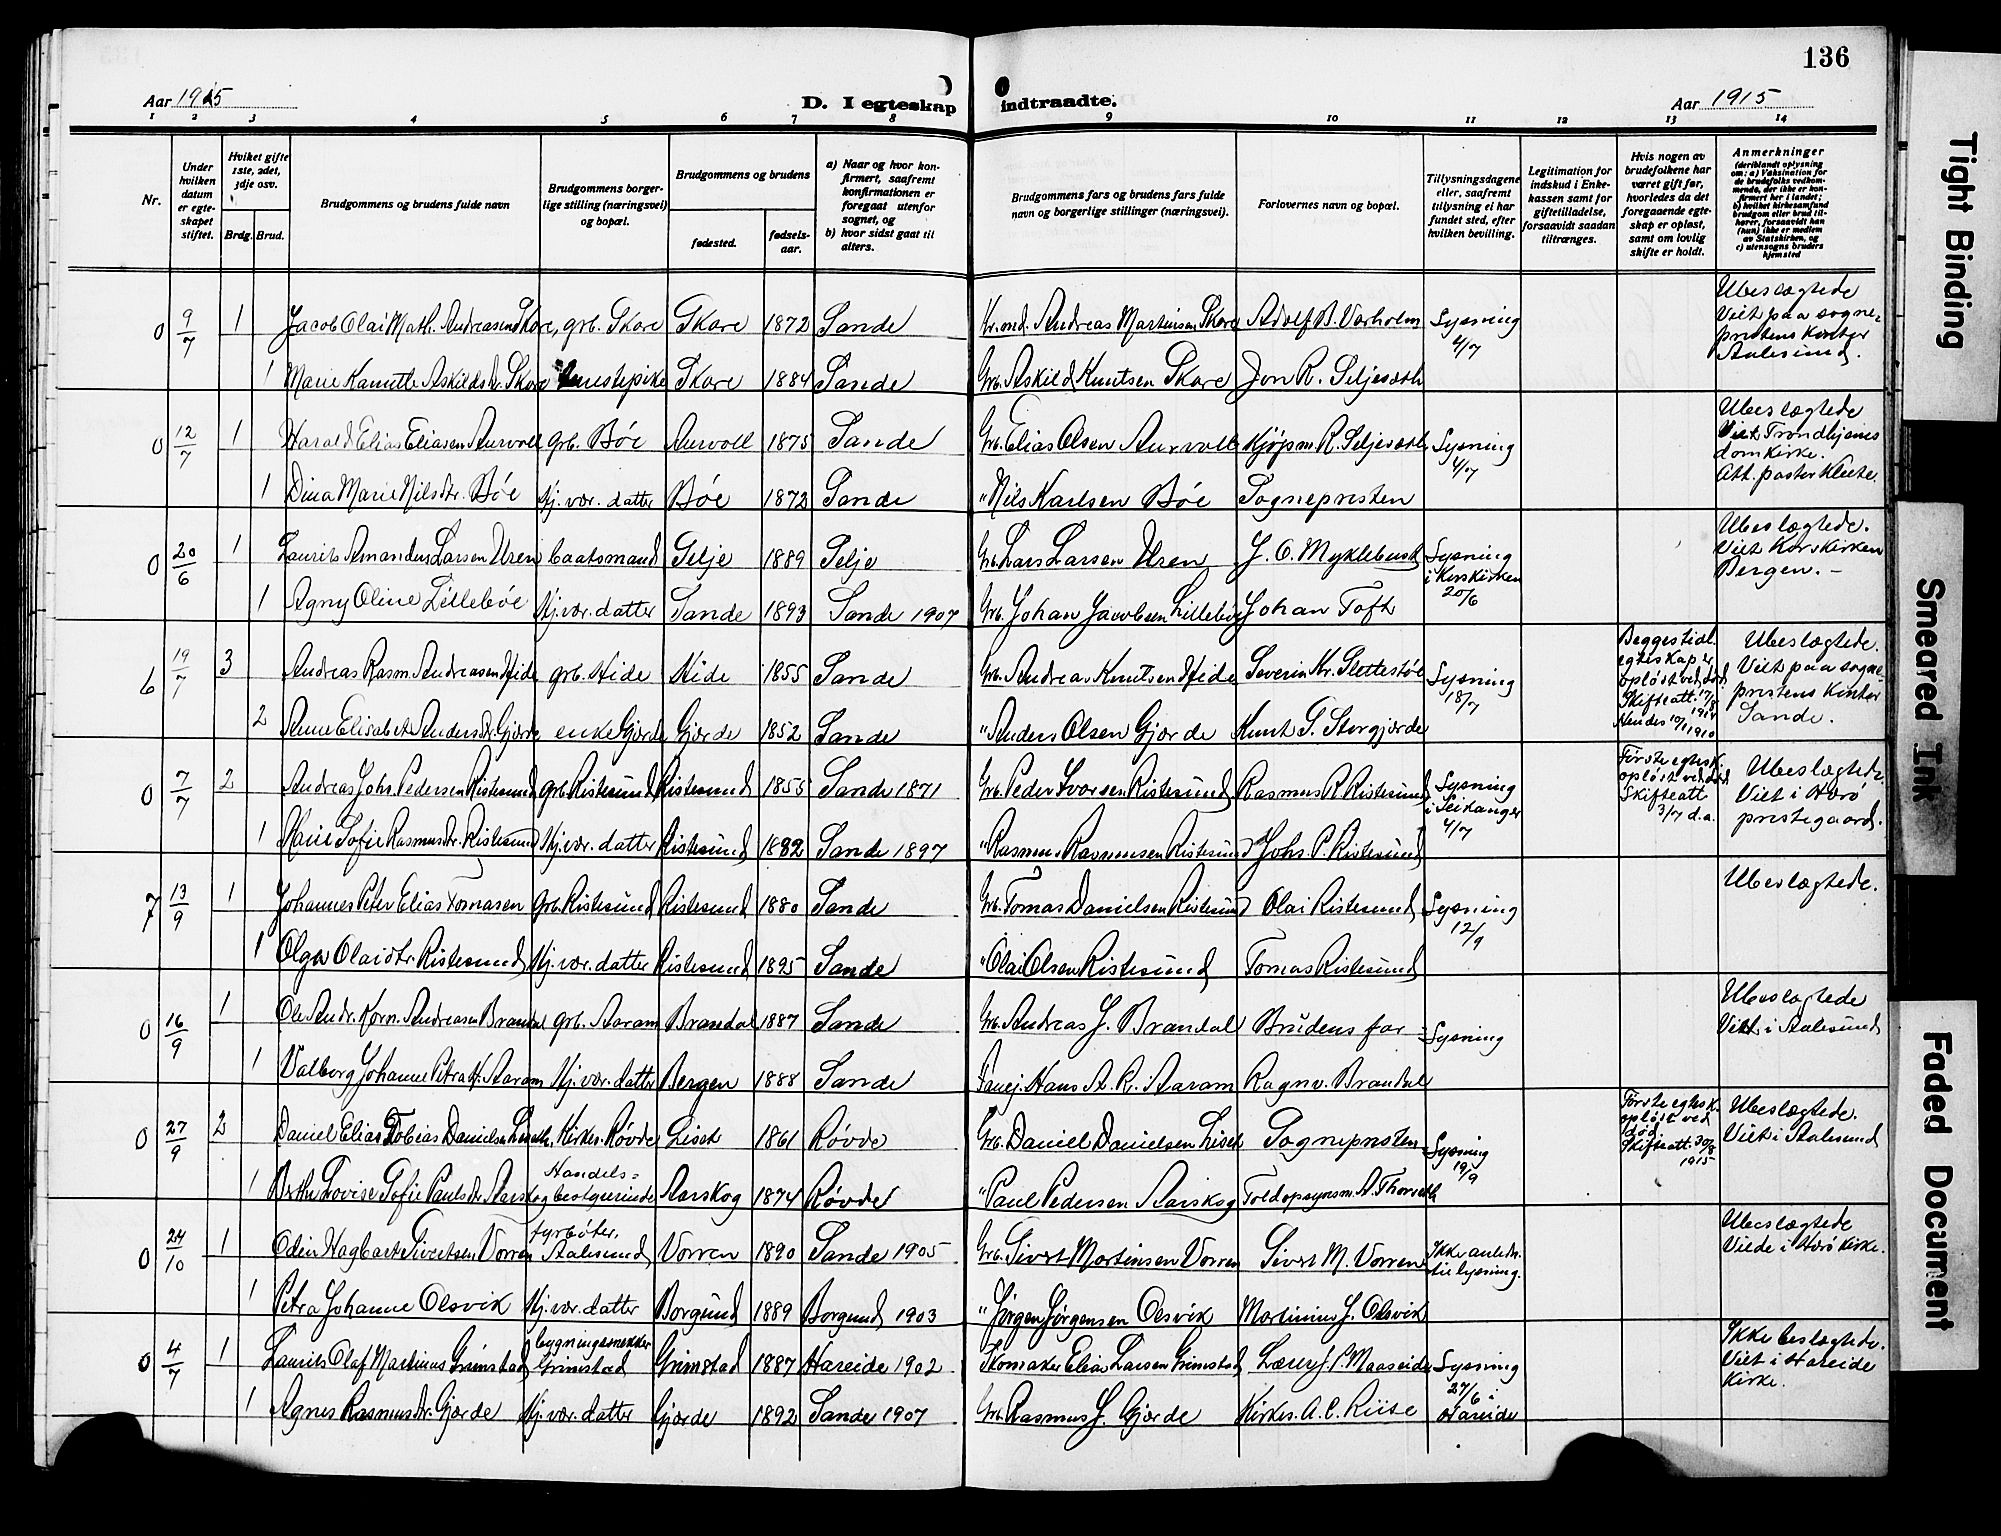 136
Aar 1915
D. I egteskap indtraadte.
Aar 1915
1 2 3 4 5 6 7 8 9 10 11 12 13 14
Nr.
Under hvilken datum er egteskapet stiftet.
Hviket gifte 1ste, 2det, 3dje osv.
Brdg. Brud.
Brudgommens og brudens fulde navn
Brudgommens borgerlige stilling (næringsvei) og bopæl.
Brudgommens og brudens
fødested.
fødselsaar.
a) Naar og hvor konfirmert, saafremt konfirmationen er foregaat utenfor sognet, og
b) hvor sidst gaat til alters.
Brudgommens fars og brudens fars fulde navn og borgerlige stillinger (næringsvei).
Forlovernes navn og bopæl.
Tillysningsdagene eller, saafremt tillysning ei har fundet sted, efter hvilken bevilling.
Legitimation for indskud i Enkekassen samt for giftetilladelse, forsaavidt saadan tiltrænges.
Hvis nogen av brudefolkene har været gift før, hvorledes da det foregaaende egteskap er opløst, samt om lovlig skifte er holdt.
Anmerkninger
(deriblandt oplysning om: a) Vaksination for de brudefolks vedkommende, der ikke er konfirmert her i landet; b) hvilket kirkesamfund brudgom eller brud tilhører, forsaavidt han (hun) ikke er medlem av Statskirken, og c) utensogns bruders hjemsted
0 9/7 1 Jacob Olai Math. Andreasen Skare, grb. Skare Skare 1872 Sande Andreas Martinsen Skare Adolf B. Varholm Lysning 4/7 Ubeslægtede Viet paa sogneprestens kontor Aalesund.
1 Marie Kamille Askildsdr. Skare Skare 1884 Sande Grb. Askild Knutsen Skare Jon R. Seljeseth
0 12/7 1 Harald Elias Eliasen Aurvoll grb. Bøe Aurvoll 1875 Sande Grb. Elias Olsen Aurvoll Kjøpm. R. Seljeseth Lysning 4/7 Ubeslægtede Viet Trondhjems domkirke. Att. pastor
1 Dina Marie Nilsdtr. Bøe Hj. vær. datter Bøe 1872 Sande " Nils Karlsen Bøe Sognepresten
0 20/6 1 Laurits Amandus Larsen Uren baatsmand Selje 1889 Selje Grb. Lars Larsen Uren J. O. Myklebust Lysning i Korskirken 20/6 Ubeslægtede. Viet Korskirken Bergen. -
1 Agny Oline Lillebøe Hj. vær. datter Sande 1893 Sande 1907 Grb. Johan Jacobsen Lillebøe Johan Toft
6 19/7 3 Andreas Rasm. Andreasen Hide grb. Hide Hide 1855 Sande Grb. Andreas Knutsen Hide Severin Kr. Slottestøl Lysning 18/7 Begges tidl. egteskap er opløst ved død Skifteatt. 17/8 1914 Hendes 10/1 1910 Ubeslægtede. Viet paa sogneprestens kontor Sande.
2 Anne Elisabete Andersdtr. Gjærde enke Gjærde Gjærde 1852 Sande " Anders Olsen Gjærde Knut T. Storgjærde
0 7/7 2 Andreas Johs. Pedersen Ristesund grb. Ristesund Ristesund 1855 Sande 1871 Grb. Peder Ivarsen Ristesund Rasmus R. Ristesund Lysning i Leikanger 4/7 Første egtesk. opløst ved død Skifteatt. 3/7 d.a. Ubeslægtede Viet i Herø prestegaard.
1 Marie Sofie Rasmusdtr. Ristesund Hj. vær. datter Ristesund 1882 Sande 1897 " Rasmus Rasmussen Ristesund Johs. P. Ristesund
7 13/9 1 Johannes Peter Elias Tomasen Grb. Ristesund Ristesund 1880 Sande Grb. Tomas Danielsen Ristesund Olai Ristesund Lysning 12/9 Ubeslægtede.
1 Olga Olaidtr. Ristesund Hj. vær. datter Ristesund 1895 Sande " Olai Olsen Ristesund Tomas Ristesund
0 16/9 1 Ole Andr. Korn. Andreasen Brandal grb. Aaram Brandal 1887 Sande Grb. Andreas J. Brandal Brudens far Lysning Ubeslægtede Viet i Aalesund
1 Valborg Johanne Petra H. Aaram Hj. vær. datter Bergen 1888 Sande Hans A. R. Aaram Ragnv. Brandal
0 27/9 2 Daniel Elias Tobias Danielsen Kirkes. Røvde 1861 Røvde Grb. Daniel Danielsen Sognepresten Lysning 19/9 Første egtesk. opløst ved død Skifteatt. 30/8 1915 Ubeslægtede. Viet i Aalesund
1 Berthe Lovise Sofie Paulsdtr. Aarskog Handelsbestyrerinde Aarskog 1874 Røvde " Paul Pedersen Aarskog Toldopsynsm. A. Thorseth
0 24/10 1 Odin Hagbart Sivertsen Vorren fyrbøter, Aalesund Vorren 1890 Sande 1905 Grb. Sivert Martinsen Vorren Sivert M. Vorren Ikke anledn. til lysning. Ubeslægtede Viede i Herø kirke.
1 Petra Johanne Olsvik Hj. vær. datter Borgund 1889 Borgund 1903 " Jørgen Jørgensen Olsvik Martinius J. Olsvik
0 4/7 1 Laurits Olaf Martinus Grimstad bygningssnekker Grimstad Grimstad 1887 Hareide 1902 Skomaker Elias Larsen Grimstad Lærer J. P. Maaseide Lysning 27/6 i Hareide Ikke beslægtede. Viet i Hareide Kirke.
1 Agnes Rasmusdtr. Gjærde Hj. vær. datter Gjærde 1892 Sande 1907 Grb. Rasmus J. Gjærde Kirkes. A. C. Riise
Tight Binding
Smeared Ink
Faded Document